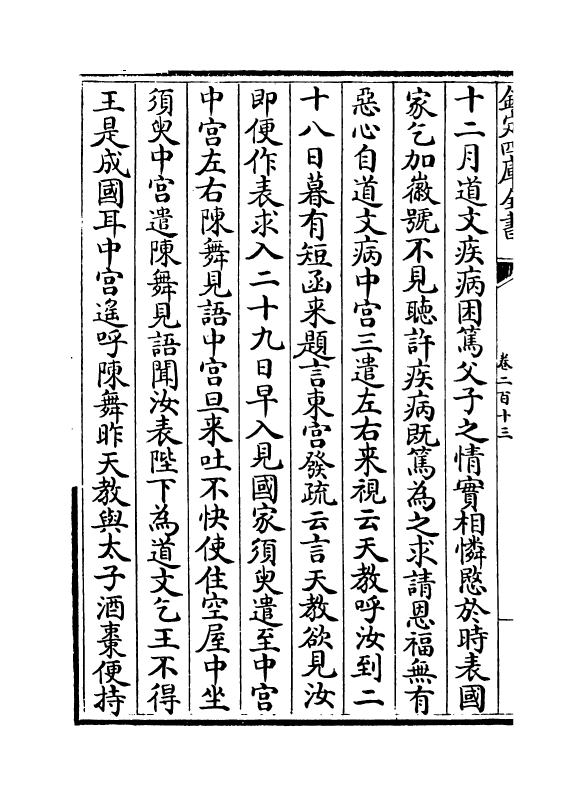 欽定四庫全書
卷二百十三
十二月道文疾病困篤父子之情實相憐愍於時表國
家乞加徽號不見聽許疾病既篤為之求請恩福無有
惡心自道文病中宫三遣左右来視云天教呼汝到二
十八日暮有短函来題言東宫發疏云言天教欲見汝
即便作表求入二十九日早入見國家須臾遣至中宫
中宫左右陳舞見語中宫旦来吐不快使住空屋中坐
須臾中宫遣陳舞見語聞汝表陛下為道文乞王不得
王是成國耳中宫遙呼陳舞昨天教與太子酒棗便持